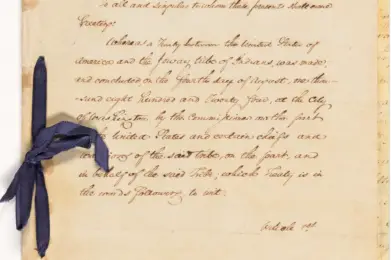 to all and singular to whom these presents shall come
Greeting:
Whereas a Treaty between the United States of
America and the Ioway tribe of Indians, was made
and concluded on the fourth day of August, one thou-
sand eight Hundred and Twenty four, at the City
of Washington by the Commissioner on the part
of the United States and certain chiefs and
of the said tribe, on the part, and
in behalf of the said Tribe; which Treaty is in
the words following to wit:
Article 1st